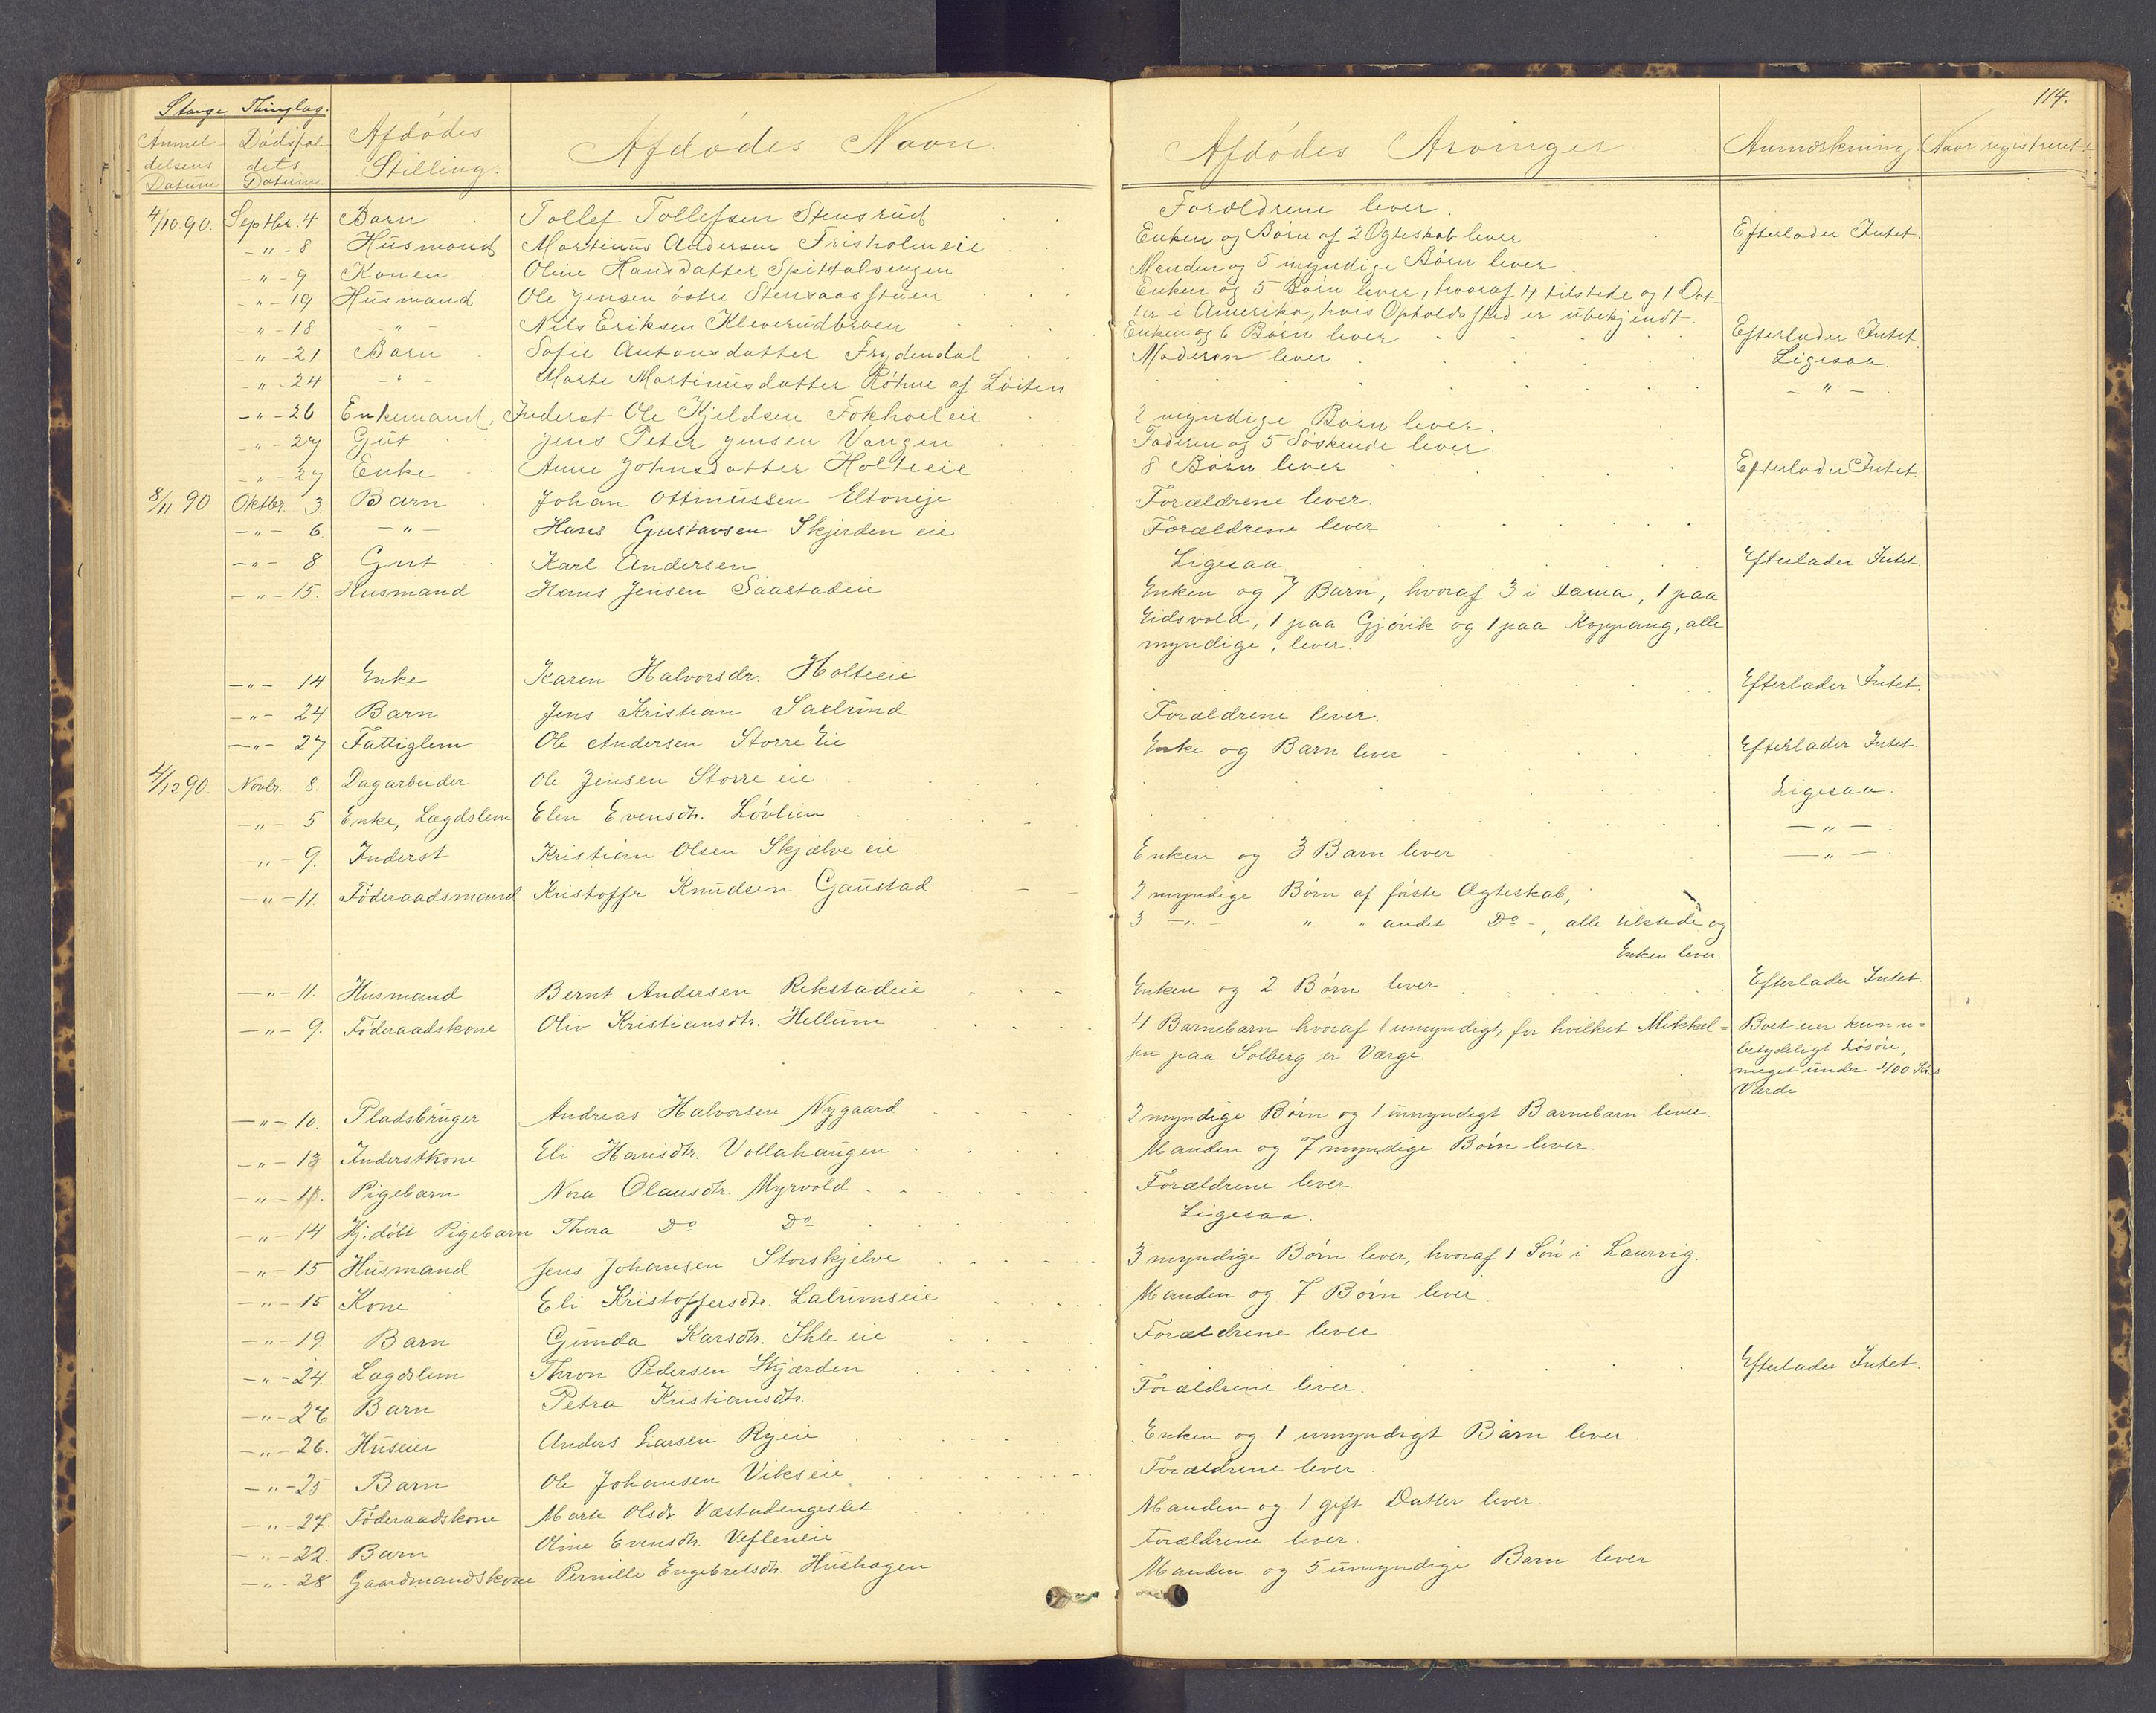 114.
Stange Thinglag.
Anmeldelsens Datum Dødsfaldets Datum. Afdødes Stilling. Afdødes Navn. Afdødes Arvinger Anmærkning Naar registreret
4/10.90. Septbr. 4 Barn Tollef Tollefsen Stensrud Forældrene lever.
-"- 8 Husmand Martinus Andersen Frisholmeie Enken og Børn af 2 Ægteskab lever Efterlader Intet.
-"- 9 Konen Oline Hansdatter Spittalsengen Manden og 5 myndige Børn lever
-"- 19 Husmand Ole Jensen østre Stensaasstuen Enken og 5 Børn lever, hvoraf 4 tilstede og 1 Dat-
ter i Amerika, hvis Opholdssted er ubekjendt.
-"- 18 -"- Nils Eriksen Kleverudbroen Enken og 6 Børn lever Efterlader Intet.
-"- 21 Barn Sofie Antonsdatter Frydendal Moderen lever Ligesaa.
-"- 24 -"- Marte Martinusdatter Røhne af Løiten -"-
-"- 26 Enkemand, Inderst Ole Kjeldsen Fokholeie 2 myndige Børn lever.
-"- 27 Gut Jens Peter Jensen Vangen Faderen og 5 Søskende lever.
-"- 27 Enke Anne Johnsdatter Holteeie 8 Børn lever Efterlader Intet.
8/11 90 Oktbr. 3 Barn Johan Ottinussen Eltoneje Forældrene lever.
-"- 6 -"- Hans Gustavsen Skjerden eie Forældrene lever
-"- 8 Gut Karl Andersen Ligesaa Efterlader Intet.
-"- 15. Husmand Hans Jensen Saastadeie Enken og 7 Barn, hvoraf 3 i Xania, 1 paa
Eidsvold, 1 paa Gjøvik og 1 paa Koppang, alle
myndige, lever.
-"- 14 Enke Karen Halvorsdr. Holteeie Efterlader Intet.
-"- 24 Barn Jens Kristian Saxlund Forældrene lever.
-"- 27 Fattiglem Ole Andersen Storre Eie Enke og Barn lever Efterlader Intet.
4/12 90. Novbr. 8. Dagarbeider Ole Jensen Storre eie Ligesaa.
-"- 5 Enke, Lægdslem Elen Evensdtr. Løvlien -"-
-"- 9. Inderst Kristian Olsen Skjælve eie Enken og 3 Barn lever -"-
-"- 11 Føderaadsmand Kristoffer Knudsen Gaustad 2 myndige Børn af første Ægteskab,
3 -"- " " andet Do -, alle tilstede og
Enken lever.
-"- 11. Husmand Bernt Andersen Rekstadeie Enken og 2 Børn lever Efterlader Intet.
-"- 9. Føderaadskone Oliv Kristiansdtr. Hellum 4 Barnebarn hvoraf 1 umyndigt, for hvilket Mikkel= Boet eier kun u=
sen paa Solberg er Værge. betydeligt Løsøre,
meget under 400 Krs
Værdi
-"- 10. Pladsbruger Andreas Halvorsen Nygaard 2 myndige Børn og 1 umyndigt Barnebarn lever.
-"- 13 Inderstkone Eli Hansdtr. Vollahaugen Manden og 7 myndige Børn lever.
-"- Pigebarn Nora Olausdtr. Myrvold Forældrene lever
-"- 14 Hj. døbt Pigebarn Thora Do Do Ligesaa.
-"- 15 Husmand Jens Johansen Storskjelve 3 myndige Børn lever, hvoraf 1 Søn i Laurvig.
-"- 15 Kone Eli Kristoffersdtr. Lalumseie Manden og 7 Børn lever
-"- 19. Barn Gunda Karsdtr. Ihle eie Forældrene lever
-"- 24. Lægdslem Thron Pedersen Skjærden Efterlader Intet.
-"- 26 Barn Petra Kristiansdtr. Forældrene lever.
-"- 26. Huseier Anders Larsen Ryeie Enken og 1 umyndigt Barn lever.
-"- 25 Barn Ole Johansen Vikseie Forældrene lever.
-"- 27. Føderaadskone Marte Olsdr. Væstadengeslet Manden og 1 gift Datter lever.
-"- 22. Barn Oline Evensdtr. Vefleneie Forældrene lever.
-"- 28 Gaardmandskone Pernille Engebretsdtr. Hushagen Manden og 5 umyndige Barn lever